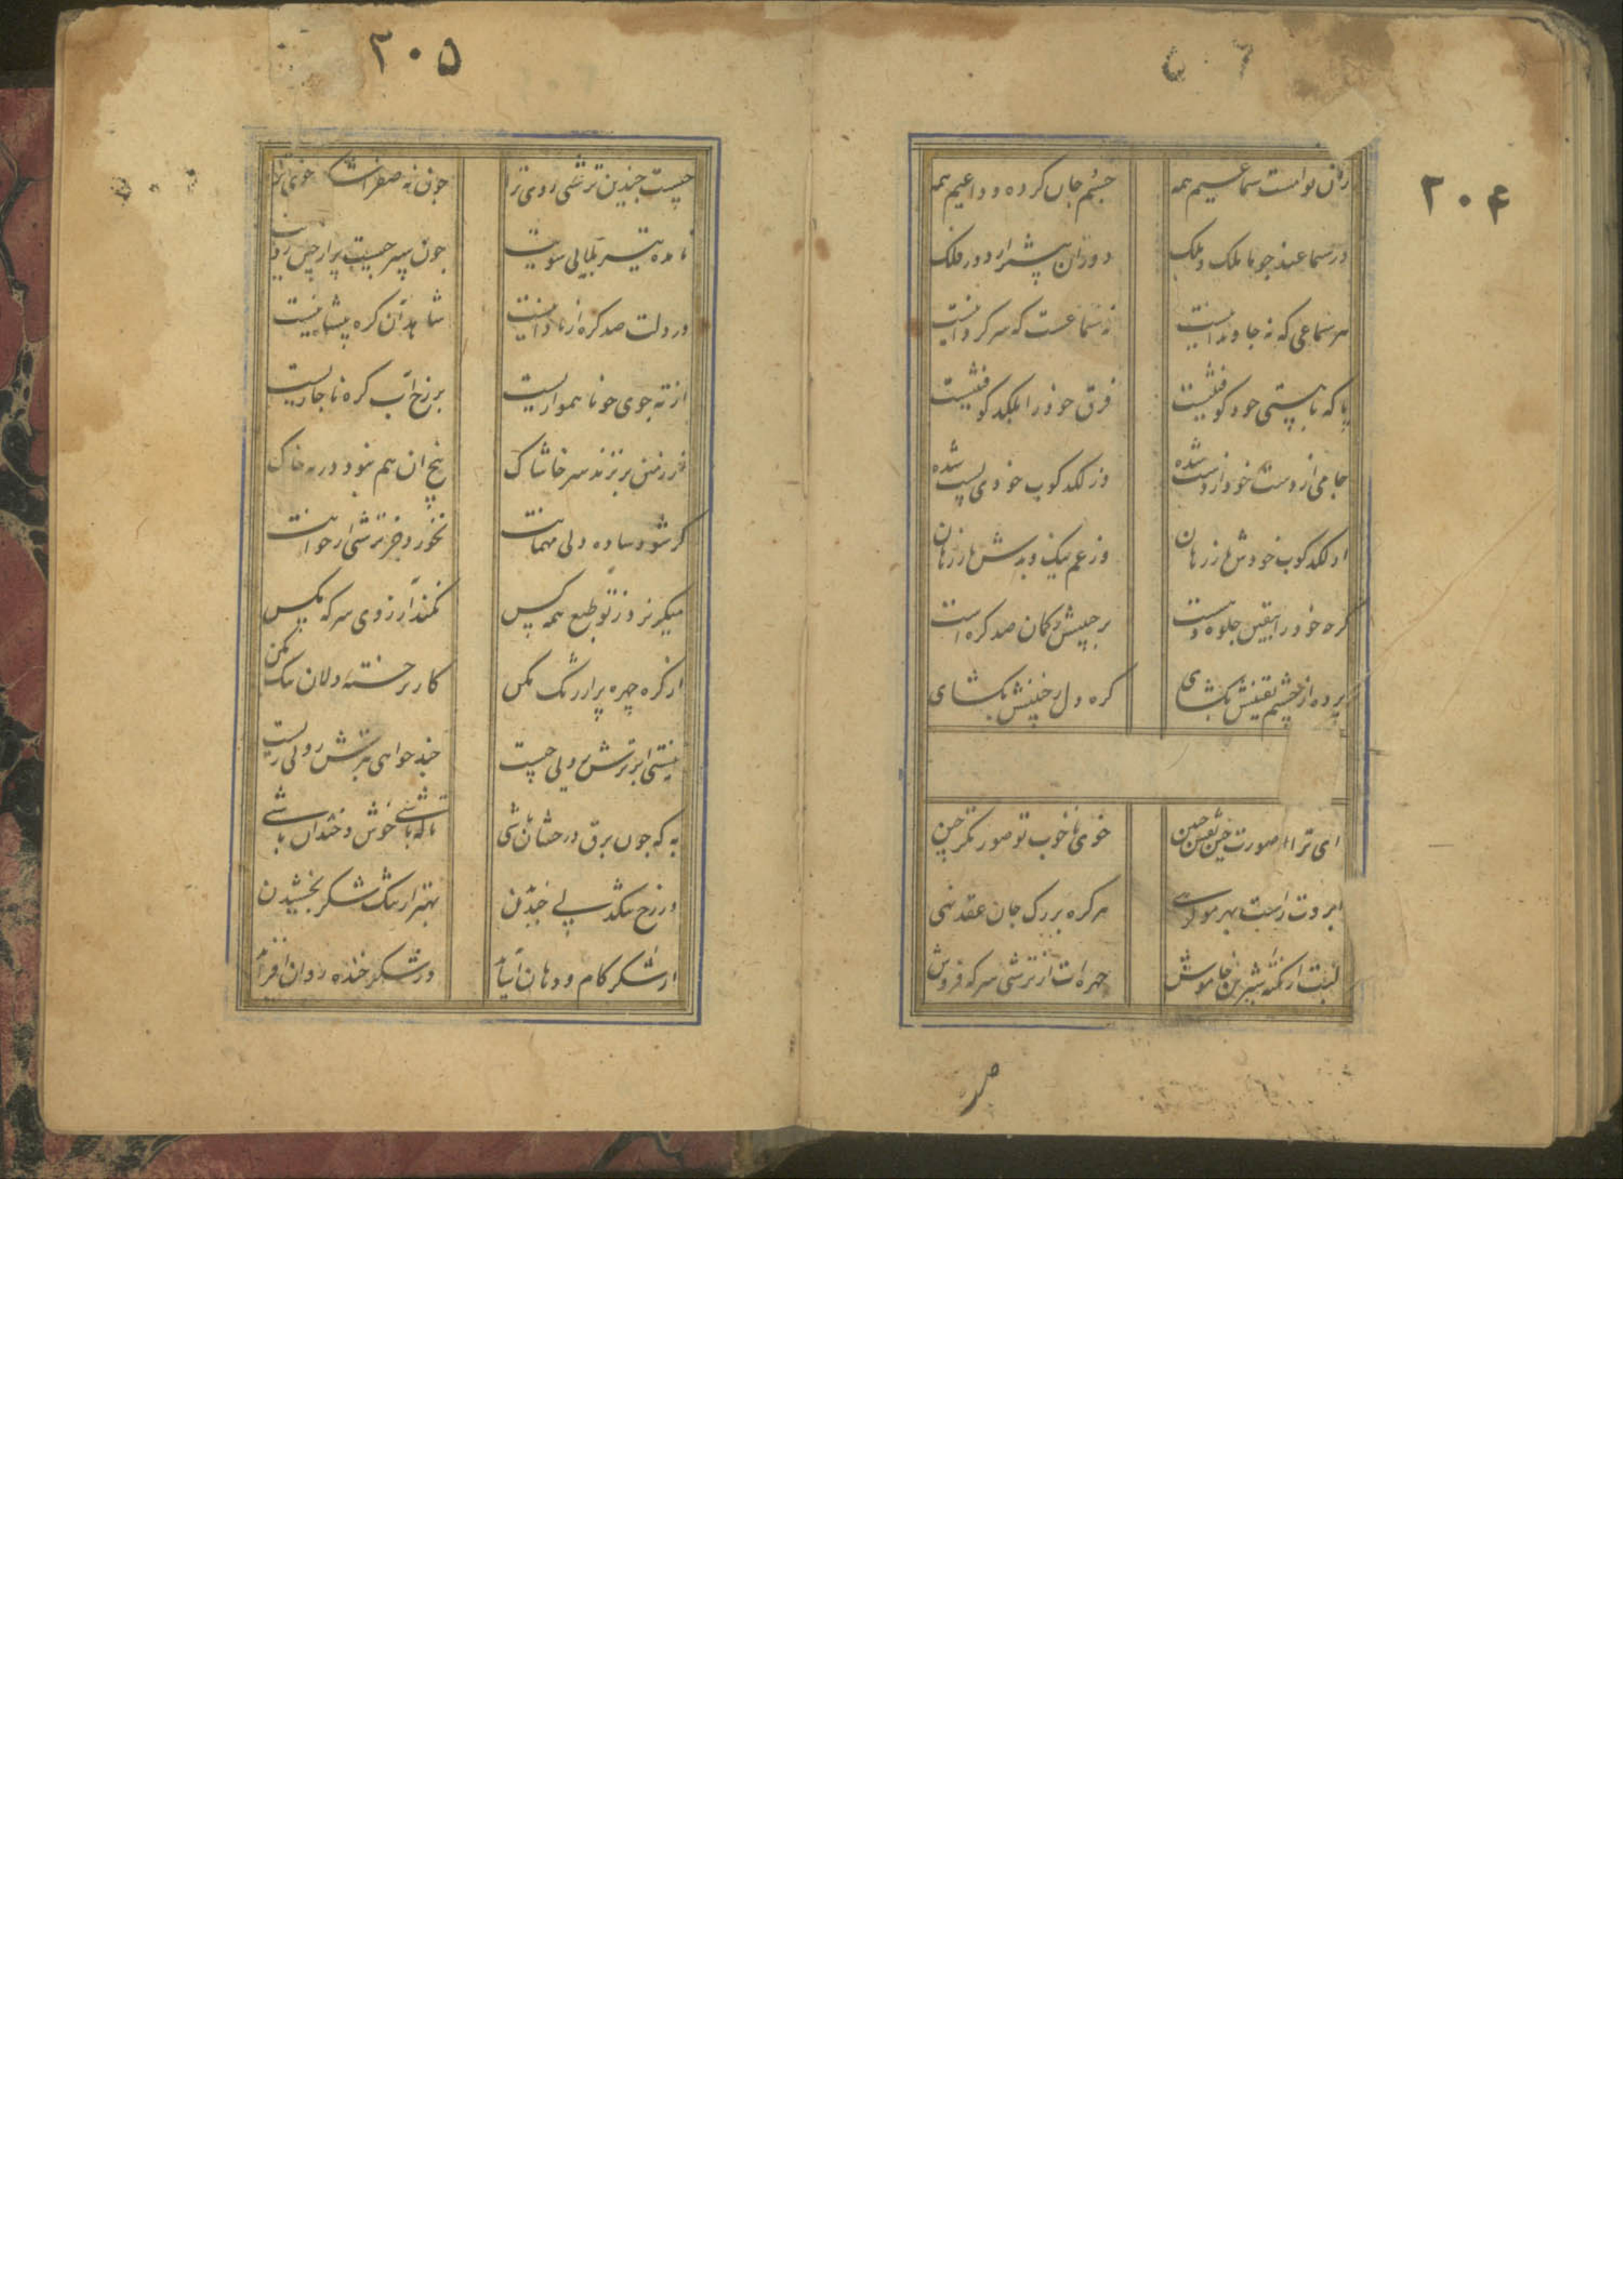 ۲۰۴
زان نوا مست سماعیم همه
جسم جان کرده وداعیم همه
در سماعند چو ما ملک و ملک
دوران پیشتر از دور فلک
هر سماعی که نه جاودانیست
نه سماعست که سرگردانیست
پا که با پستی خود کوفتنیست
فرق خود را بلگد کوفتنیست
جامی از دست خود از دست شده
وز لگدکوب خودی پست شده
از لگدکوب خودش باز رهان
وز غم نیک و بدش باز رهان
گرچه خود را بیقین جلوه دهست
بر جبینش ز گمان صد گره است
پرده از چشم یقینش بگشای
گره دل ز جبینش بگشای
ای ترا صورت چین نقش جبین
خوی ناخوب تو صورتگر چین
ابروت راست بهر موی گرهی
هر گره بر رگ جان عقد نهی
لبت از نکته شیرین خاموش
چهره‌ات از ترشی سرکه فروش
۲۰۵
چیست چندین ترشی روی ترا
چون نه صفراست خوی ترا
نامده تیر بلایی سویت
چون سپر چیست پر از چین رویت
در دلت صد گره از نادانیست
شاهد آن گره پیشانیست
از ته جوی چو ناهمواریست
بر رخ آب گره ناچاریست
از زمین بر نزند سر خاشاک
بیخ آن هم نبود در ته خاک
گر شود ساده دلی مهمانت
نخورد جز ترشی از خوانت
میگریزد ز تو طبع همه کس
نکند آرزوی سرکه مگس
از گره چهره پر آژنگ مکن
کار بر خسته دلان تنگ مکن
نیستی ابر ترش رویی چیست
چند خواهی بترش رویی زیست
به که چون برق درخشان باشی
تا که باشی خوش و خندان باشی
در رخ تنگدلی خندیدن
بهتر از تنگ شکر بخشیدن
از شکر کام و دهان آساید
وز شکرخنده روان افزاید